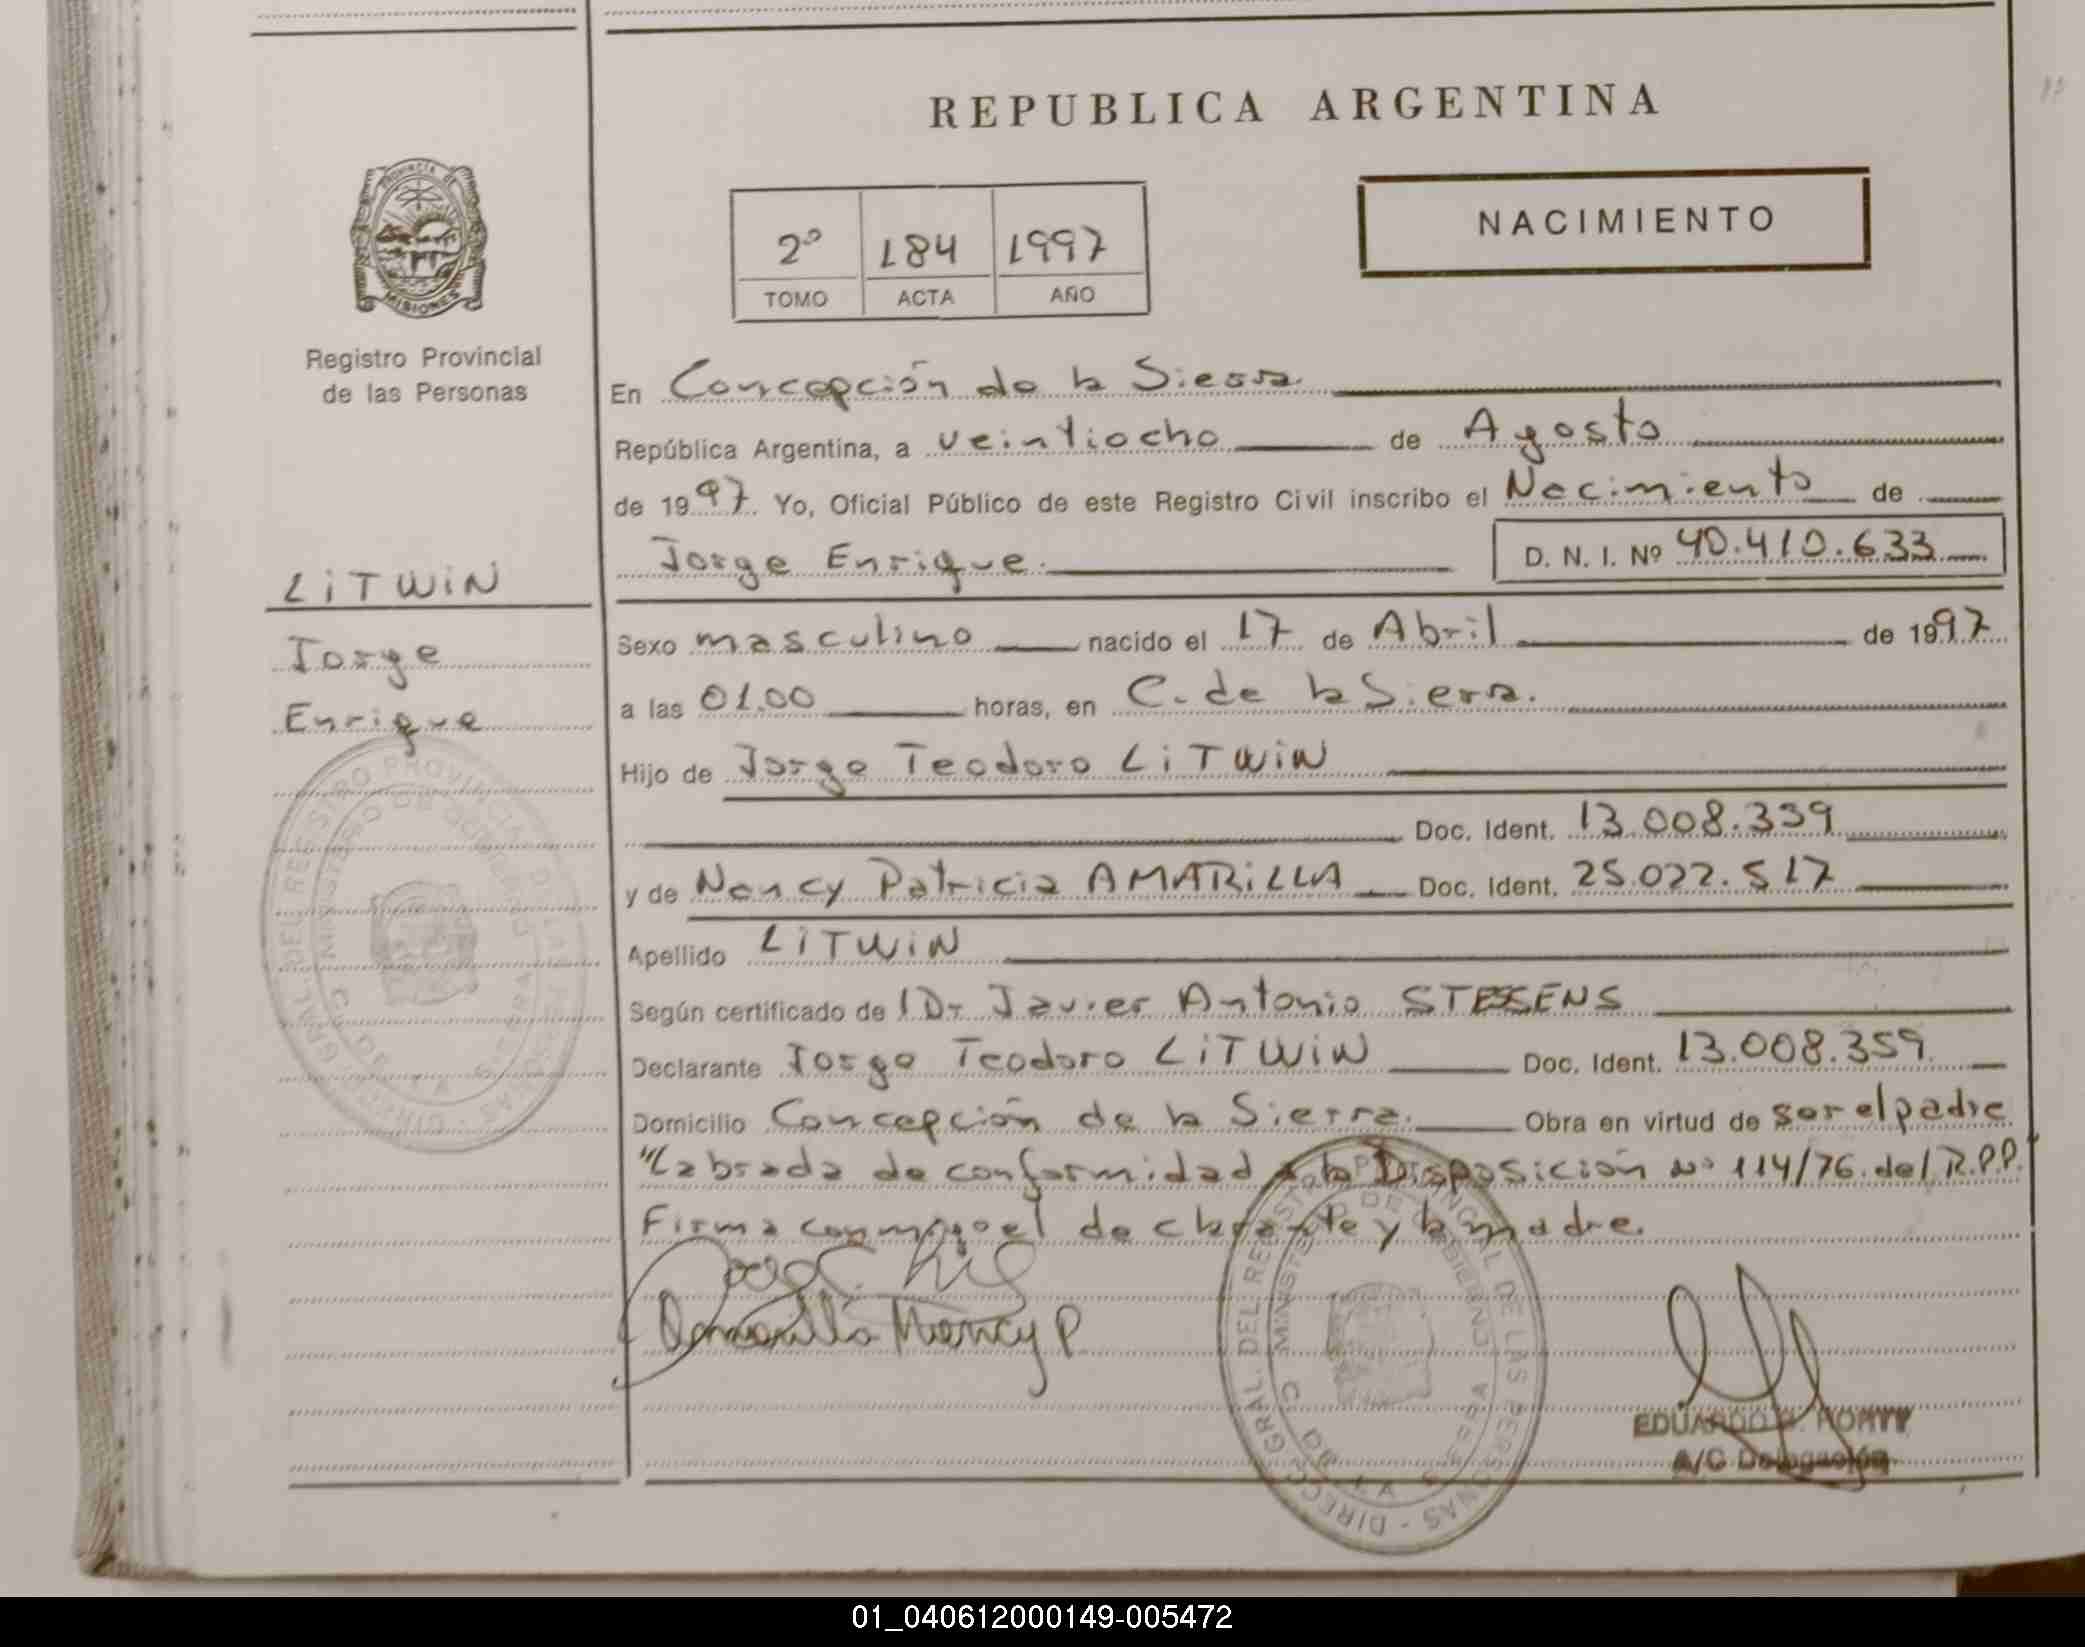 REPUBLICA ARGENTINA
PROVINCIA DE MISIONES
Registro Provincial
de las Personas
2º 184 1997
TOMO ACTA AÑO
NACIMIENTO
En Concepción de la Sierra
República Argentina, a veintiocho de Agosto
de 1997. Yo, Oficial Público de este Registro Civil inscribo el Nacimiento de
Jorge Enrique D. N. I. Nº 40.410.633
LiTWiN
Jorge
Enrique
Sexo masculino nacido el 17 de Abril de 1997
a las 01.00 horas, en C. de la Sierra.
Hijo de Jorge Teodoro LiTWiN
Doc. Ident. 13.008.359
y de Nancy Patricia AMARiLLA Doc. Ident. 25.022.517
Apellido LiTWiN
Según certificado de Dr Javier Antonio STESSENS
Declarante Jorge Teodoro LiTWiN Doc. Ident. 13.008.359
Domicilio Concepción de la Sierra. Obra en virtud de ser el padre
"Labrada de conformidad a la Disposición Nº 114/76 del R.P.P."
Firma conmigo el declarante y la madre.
Amarilla Nancy P.
DIRECC. GRAL. DEL REGISTRO PROVINCIAL DE LAS PERSONAS -
MINISTERIO DE GOBIERNO
C. DE LA SIERRA
DIRECC. GRAL. DEL REGISTRO PROVINCIAL DE LAS PERSONAS -
MINISTERIO DE GOBIERNO
C. DE LA SIERRA
EDUARDO
A/C Delegación
01_040612000149-005472